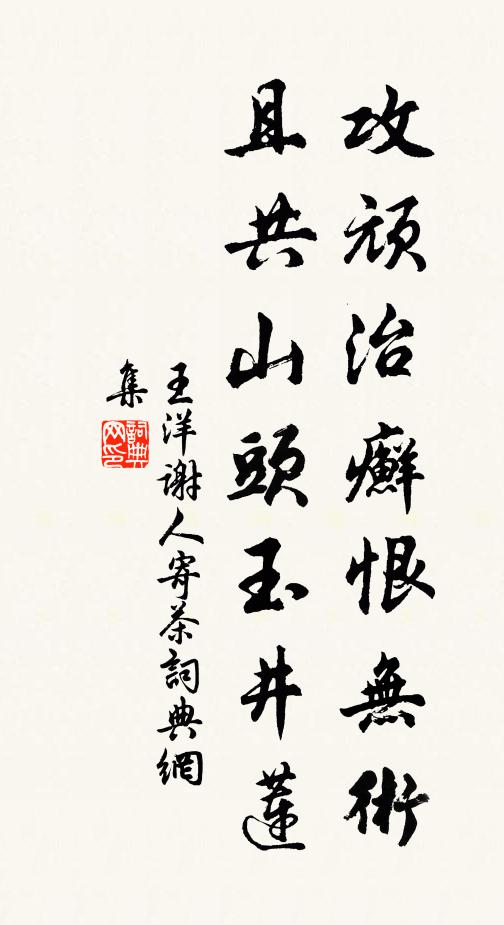 攻頑治癬恨無術
且共山頭玉井蓮
王洋謝人寄茶詞典網
集
詞典
网印